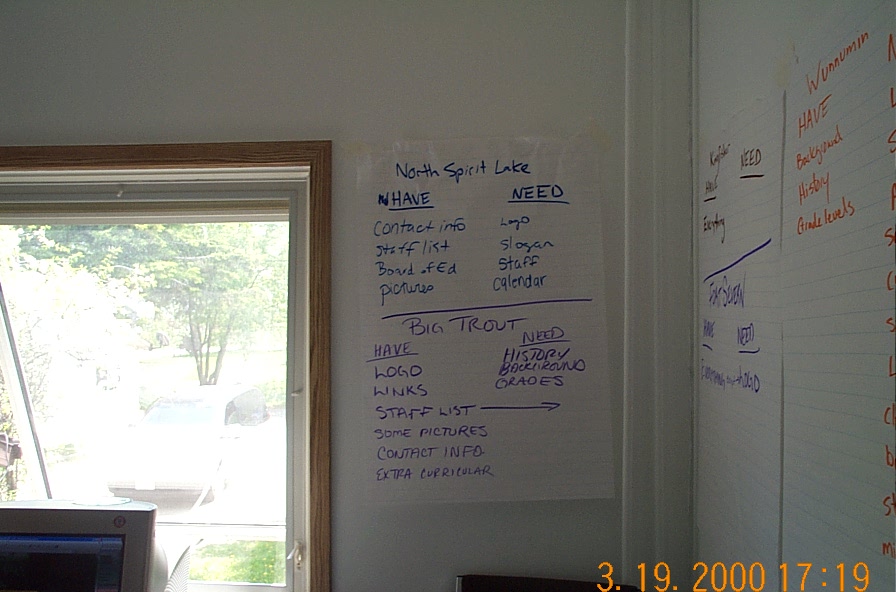 North Spirit Lake
HAVE NEED
Contact info Logo
Staff list Slogan
Board of Ed Staff
pictures Calendar
BIG TROUT
HAVE NEED
LOGO HISTORY
LINKS BACKGROUND
STAFF LIST GRADES
SOME PICTURES
CONTACT INFO
EXTRA CURRICULAR
NEED
HAVE
Everything
FORT SEVERN
HAVE NEED
LOGO
Wunnumin
HAVE
Background
History
Grade levels
3. 19. 2000 17:19